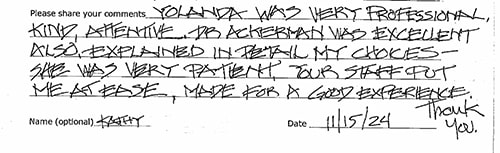 Please share your comments YOLANDA WAS VERY PROFESSIONAL,
KIND, ATTENTIVE. DR ACKERMAN WAS EXCELLENT
ALSO, EXPLAINED IN DETAIL MY CHOICES—
SHE WAS VERY PATIENT, YOUR STAFF PUT
ME AT EASE, MADE FOR A GOOD EXPERIENCE.
Thank
You.
Name (optional) KATHY Date 11/15/24